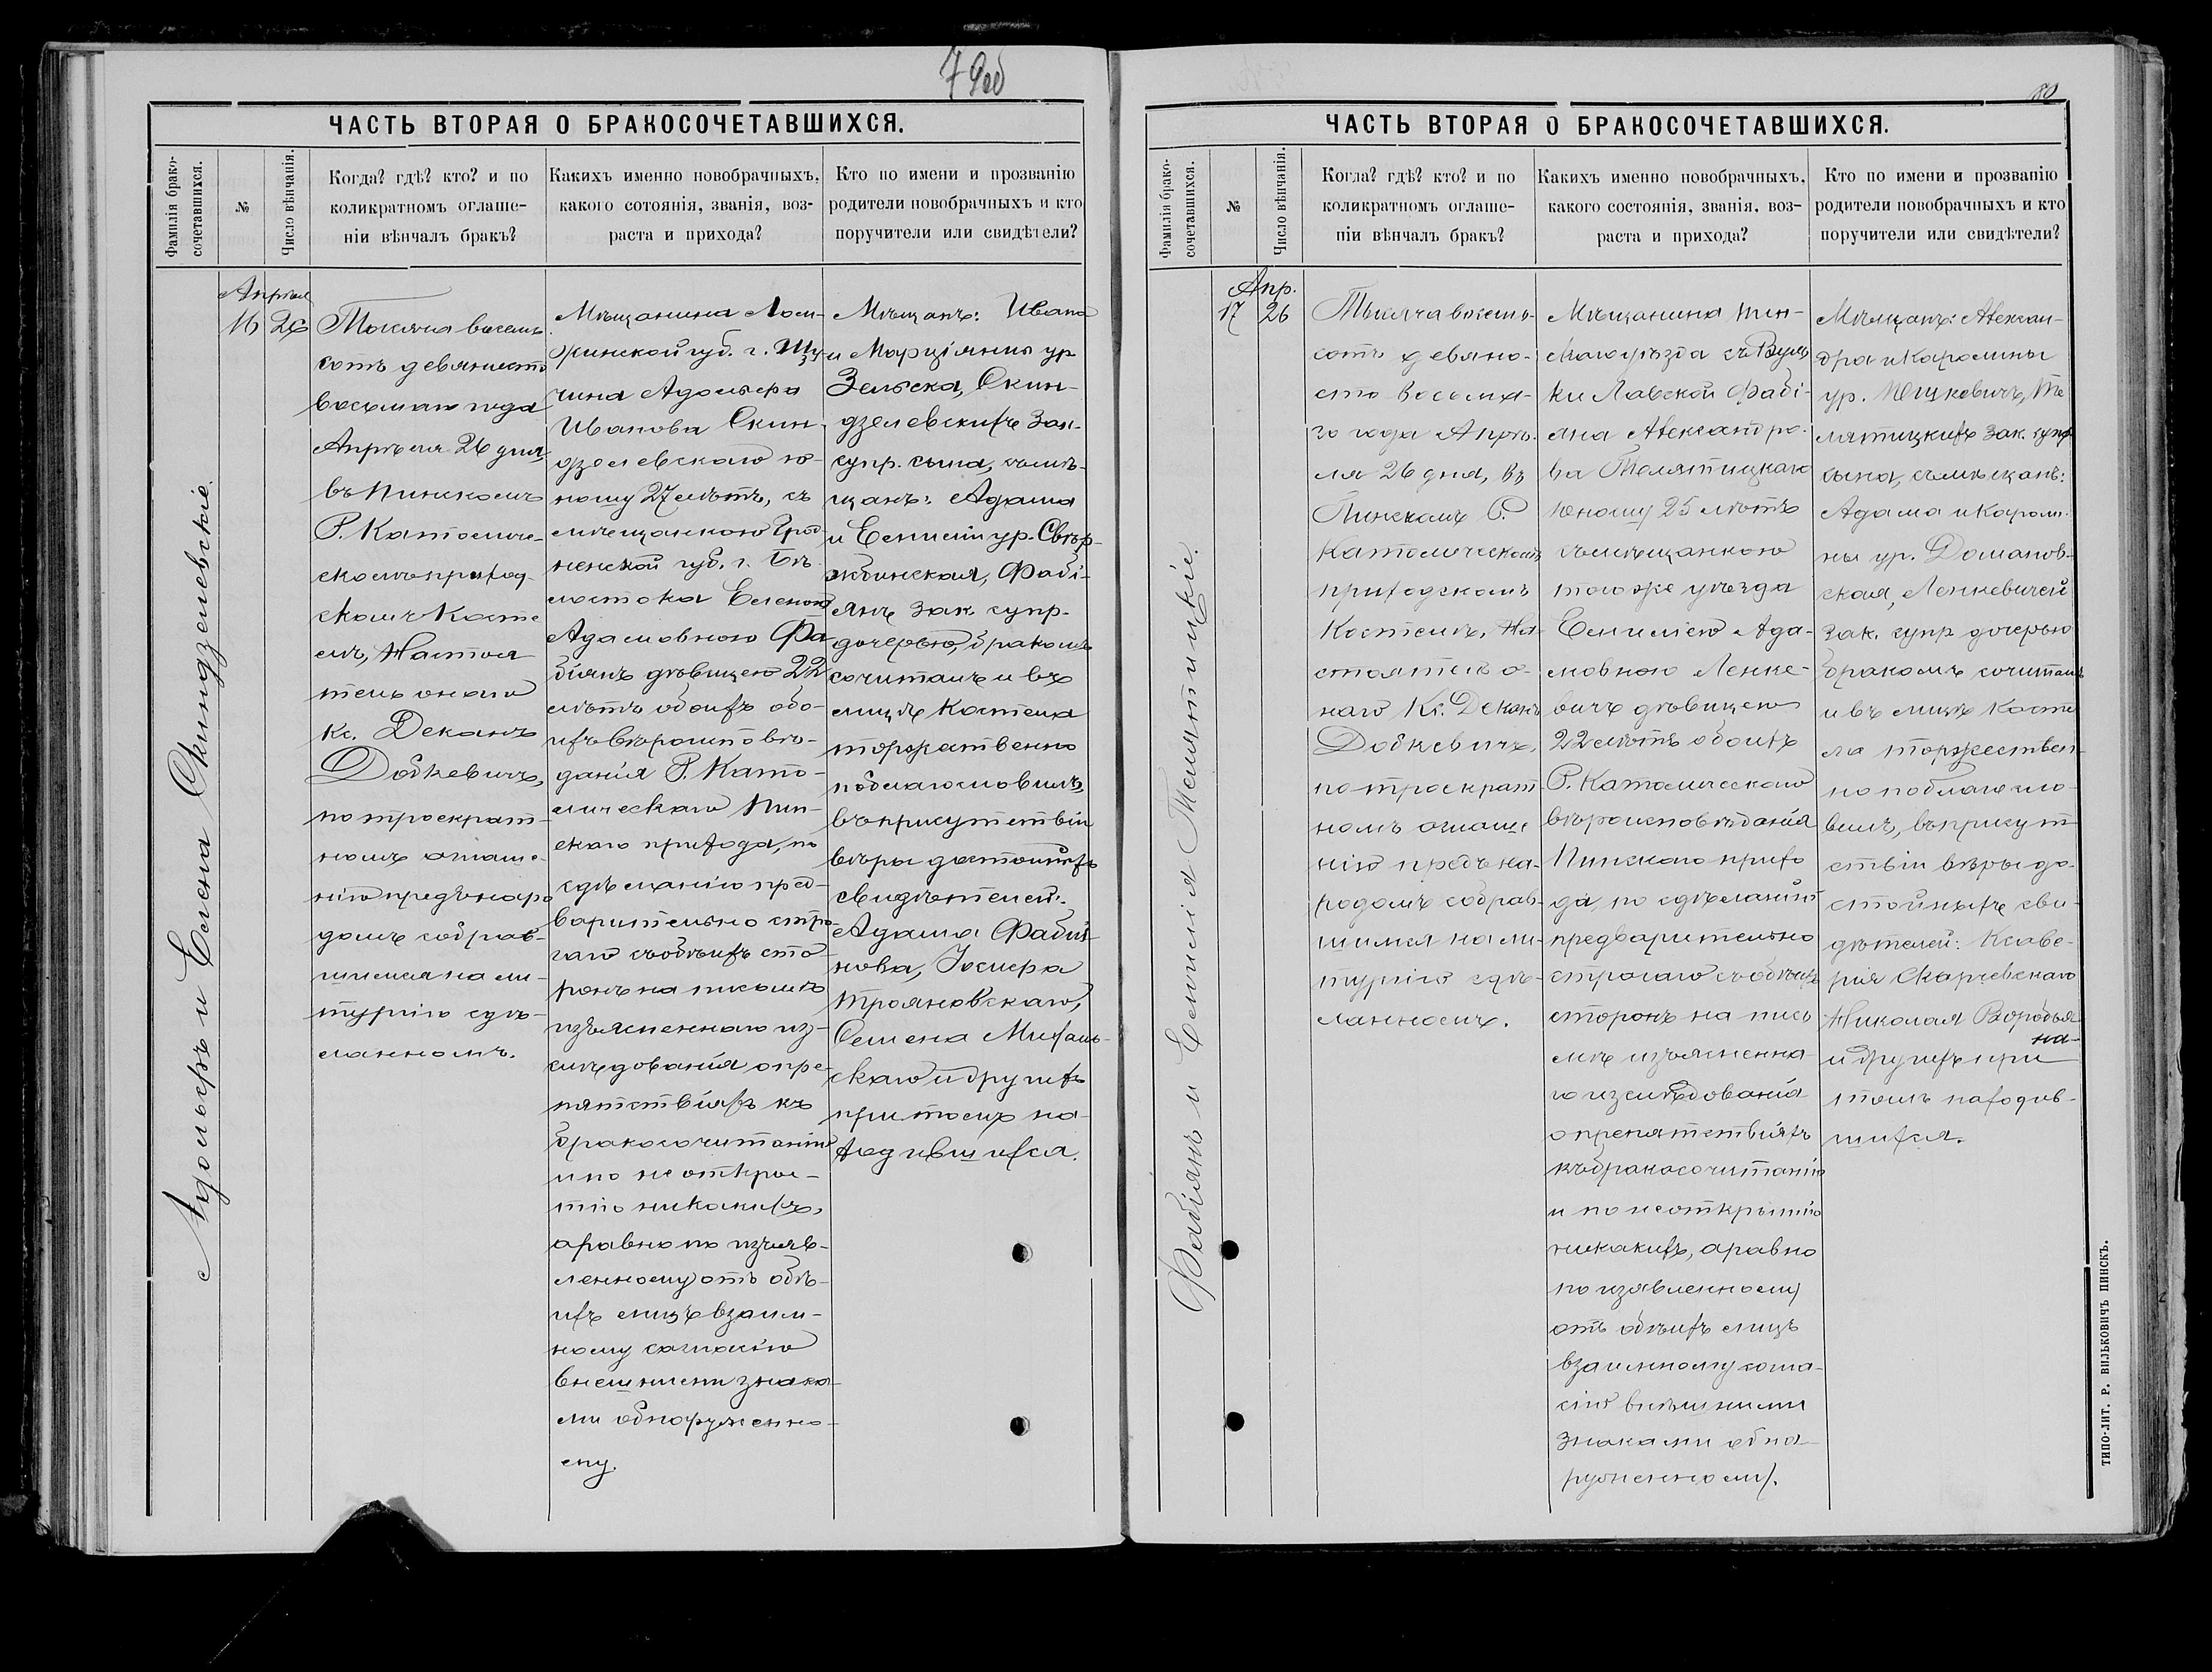 79об
ЧАСТЬ ВТОРАЯ О БРАКОСОЧЕТАВШИХСЯ.
Фамилія брако-
сочетавшихся.
№
Число вѣнчанія.
Когда? гдѣ? кто? и по
коликратномъ оглаше-
ніи вѣнчалъ бракъ?
Какихъ именно новобрачныхъ,
какого сотоянія, званія, воз-
раста и прихода?
Кто по имени и прозванію
родители новобрачныхъ и кто
поручители или свидѣтели?
Адольфъ и Елена Скиндзелевскіе.
Апрѣля
16 26
Тысяча восемь
сотъ девяносто
восьмаго года
Апрѣля 26 дня,
въ Пинскомъ
Р. Католиче-
скомъ приход-
скомъ Косте
лѣ, Настоя
тель онаго
Кс. Деканъ
Добкевичъ,
по троекрат-
номъ оглаше-
ніи предъ наро
домъ собрав-
шимся на ли-
тургію сдѣ-
ланномъ.
Мѣщанина Лом-
жинской губ. г. Щу-
чина Адольфа
Иванова Скин-
дзелевскаго ю-
ношу 27 лѣтъ, съ
мѣщанкою Грод-
ненской губ. г. Бѣ-
лостока Еленою
Адамовною Фа
біянъ дѣвицею 22
лѣтъ обоихъ обо-
ихъ вѣроисповѣ-
данія Р. Като-
лическаго Пин-
скаго прихода, по
сдѣланію пред-
варительно стро
гаго съ обѣихъ сто
ронъ на письмѣ
изъясненнаго из-
слѣдованія о пре-
пятствіяхъ къ
бракосочитанію
и по не откры-
тію никакихъ,
а равно по изъяв-
ленному отъ обѣ-
ихъ лицъ взаим-
ному согласію
внешними знака-
ми обнаруженно-
му.
Мѣщанъ: Ивана
и Марціянны ур.
Зельска, Скин-
дзелевскихъ зак.
супр. сына, съ мѣ-
щанъ: Адама
и Емиліи ур. Свѣр-
жбинская, Фабі-
янъ зак. супр.
дочерью, бракомъ
сочиталъ и въ
лицѣ Костела
торжественно
поблагословилъ,
въ присутствіи
вѣры достойныхъ
свидѣтелей:
Адама Фабія-
нова, Іосифа
Трояновскаго,
Семена Михаль-
скаго и другихъ
при томъ на-
ходившихся.
80
ЧАСТЬ ВТОРАЯ О БРАКОСОЧЕТАВШИХСЯ.
Фамилія брако-
сочетавшихся.
№
Число вѣнчанія.
Когла? гдѣ? кто? и по
коликратномъ оглаше-
ніи вѣнчалъ бракъ?
Какихъ именно новобрачныхъ,
какого состоянія, званія, воз-
раста и прихода?
Кто по имени и прозванію
родители новобрачныхъ и кто
поручители или свидѣтели?
Фабіянъ и Емилія Телятицкіе.
Апр.
17 26
Тысяча восемь-
сотъ девяно-
сто восьма-
го года Апрѣ-
ля 26 дня, въ
Пинскомъ Р.
Католическомъ
приходскомъ
Костелѣ, На-
стоятель о-
наго Кс. Деканъ
Добкевичъ,
по троекрат-
номъ оглаше
ніи предъ на-
родомъ собрав-
шимся на ли-
тургію сдѣ-
ланномъ.
Мѣщанина Пин-
скаго уѣзда съ Вуль
ки Лавской Фабі-
яна Александро-
ва Телятицкаго
юношу 25 лѣтъ
съ мѣщанкою
того же уѣзда
Емиліею Ада-
мовною Ленке-
вичъ дѣвицею
22 лѣтъ обоихъ
Р. Католическаго
вѣроисповѣданія
Пинскаго прихо
да, по сдѣланій
предварительно
строгаго съ обѣихъ
сторонъ на пись
мѣ изъясненна-
го изслѣдованія
о препятствіяхъ
къ бракосочитанію
и по не открытію
никакихъ, а равно
по изявленному
отъ обѣихъ лицъ
взаимному согла-
сію внѣшними
знаками обна-
руженному.
Мѣщанъ: Алексан-
дра и Каролины
ур. Юшкевичъ, Те
лятицкихъ зак. супр
сына, съ мѣщанъ:
Адама и Кароли-
ны ур. Домановская,
ская, Ленкевичей
зак. супр дочерью
бракомъ сочиталъ
и въ лицѣ Косте
ла торжествен-
но поблагосло-
вилъ, въ присут
ствіи вѣры до-
стойныхъ сви-
дѣтелей: Ксаве-
рія Скаржевскаго
Николая Воробья
на-
и другихъ при
томъ находив-
шихся.
ТИПО-ЛИТ. Р. ВИЛЬКОВИЧЪ ПИНСКЪ.